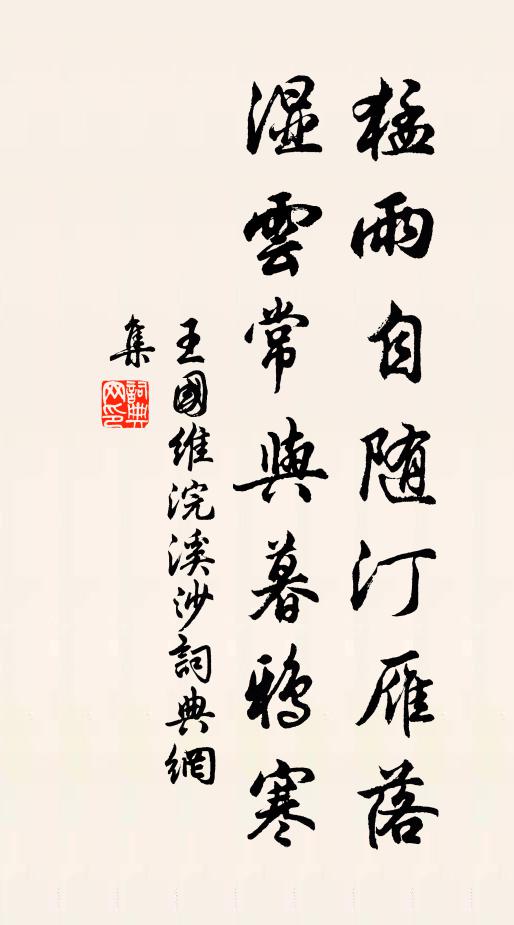 猛雨自随汀雁落
湿雲常與暮鴉寒
王國維浣溪沙詞典網
集
詞典网印